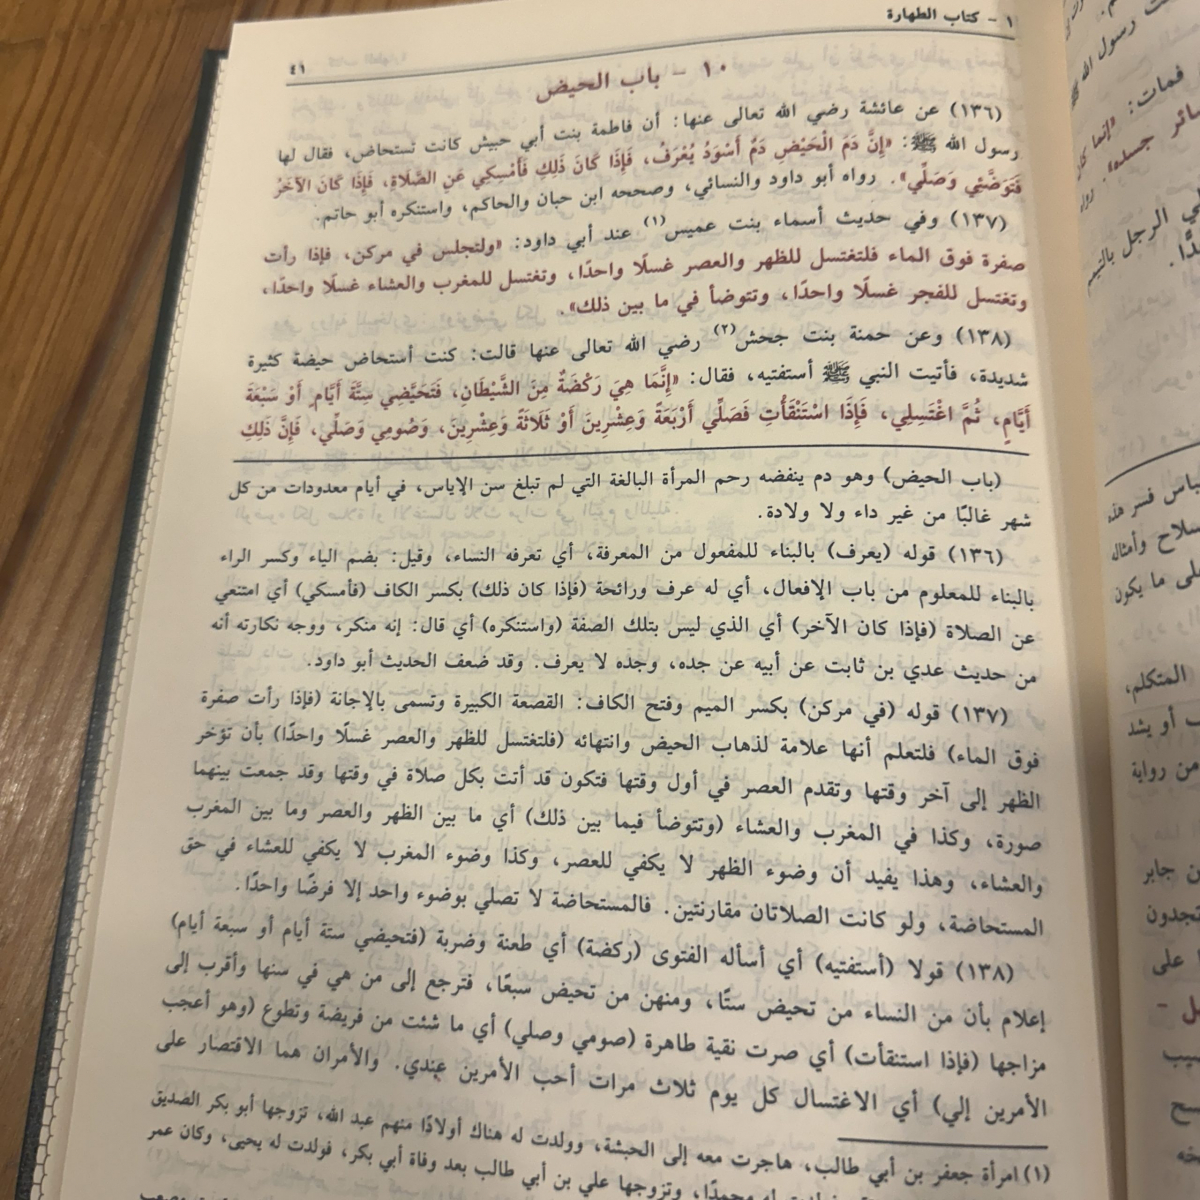 ١ - كتاب الطهارة
٤١
١٠ - باب الحيض
(١٣٦) عن عائشة رضي الله تعالى عنها: أن فاطمة بنت أبي حبيش كانت تستحاض، فقال لها
رسول الله ﷺ: «إِنَّ دَمَ الْحَيْضِ دَمٌ أَسْوَدُ يُعْرَفُ، فَإِذَا كَانَ ذَلِكَ فَأَمْسِكِي عَنِ الصَّلَاةِ، فَإِذَا كَانَ الآخَرُ
فَتَوَضَّئِي وَصَلِّي». رواه أبو داود والنسائي، وصححه ابن حبان والحاكم، واستنكره أبو حاتم.
(١٣٧) وفي حديث أسماء بنت عميس(١) عند أبي داود: «ولتجلس في مركن، فإذا رأت
صفرة فوق الماء فلتغتسل للظهر والعصر غسلًا واحدًا، وتغتسل للمغرب والعشاء غسلًا واحدًا،
وتغتسل للفجر غسلًا واحدًا، وتتوضأ في ما بين ذلك».
(١٣٨) وعن حمنة بنت جحش(٢) رضي الله تعالى عنها قالت: كنت أستحاض حيضة كثيرة
شديدة، فأتيت النبي ﷺ أستفتيه، فقال: «إِنَّمَا هِيَ رَكْضَةٌ مِنَ الشَّيْطَانِ، فَتَحَيَّضِي سِتَّةَ أَيَّامٍ أَوْ سَبْعَةَ
أَيَّامٍ، ثُمَّ اغْتَسِلِي، فَإِذَا اسْتَنْقَأْتِ فَصَلِّي أَرْبَعَةً وَعِشْرِينَ أَوْ ثَلَاثَةً وَعِشْرِينَ، وَصُومِي وَصَلِّي، فَإِنَّ ذَلِكَ
(باب الحيض) وهو دم ينفضه رحم المرأة البالغة التي لم تبلغ سن الإياس، في أيام معدودات من كل
شهر غالبًا من غير داء ولا ولادة.
(١٣٦) قوله (يعرف) بالبناء للمفعول من المعرفة، أي تعرفه النساء، وقيل: بضم الياء وكسر الراء
بالبناء للمعلوم من باب الإفعال، أي له عرف ورائحة (فإذا كان ذلك) بكسر الكاف (فأمسكي) أي امتنعي
عن الصلاة (فإذا كان الآخر) أي الذي ليس بتلك الصفة (واستنكره) أي قال: إنه منكر، ووجه نكارته أنه
من حديث عدي بن ثابت عن أبيه عن جده، وجده لا يعرف. وقد ضعف الحديث أبو داود.
(١٣٧) قوله (في مركن) بكسر الميم وفتح الكاف: القصعة الكبيرة وتسمى بالإجانة (فإذا رأت صفرة
فوق الماء) فلتعلم أنها علامة لذهاب الحيض وانتهائه (فلتغتسل للظهر والعصر غسلًا واحدًا) بأن تؤخر
الظهر إلى آخر وقتها وتقدم العصر في أول وقتها فتكون قد أتت بكل صلاة في وقتها وقد جمعت بينهما
صورة، وكذا في المغرب والعشاء (وتتوضأ فيما بين ذلك) أي ما بين الظهر والعصر وما بين المغرب
والعشاء، وهذا يفيد أن وضوء الظهر لا يكفي للعصر، وكذا وضوء المغرب لا يكفي للعشاء في حق
المستحاضة، ولو كانت الصلاتان مقارنتين. فالمستحاضة لا تصلي بوضوء واحد إلا فرضًا واحدًا.
(١٣٨) قولا (أستفتيه) أي أسأله الفتوى (ركضة) أي طعنة وضربة (فتحيضي ستة أيام أو سبعة أيام)
إعلام بأن من النساء من تحيض ستًا، ومنهن من تحيض سبعًا، فترجع إلى من هي في سنها وأقرب إلى
مزاجها (فإذا استنقأت) أي صرت نقية طاهرة (صومي وصلي) أي ما شئت من فريضة وتطوع (وهو أعجب
الأمرين إلي) أي الاغتسال كل يوم ثلاث مرات أحب الأمرين عندي. والأمران هما الاقتصار على
(١) امرأة جعفر بن أبي طالب، هاجرت معه إلى الحبشة، وولدت له هناك أولادًا منهم عبد الله، تزوجها أبو بكر الصديق
محمدًا، وتزوجها علي بن أبي طالب بعد وفاة أبي بكر، فولدت له يحيى، وكان عمر
رسول الله
فمات: «إنما
سائر جسده».
الرجل بالتيمم
فسر هذه
وأمثال
على ما يكون
المتكلم،
أو يشد
من رواية
جابر
تجدون
على